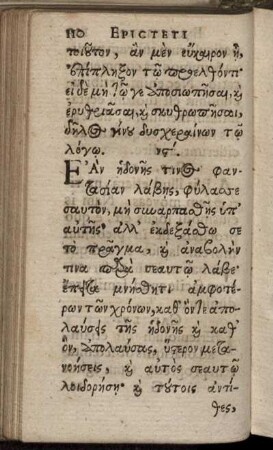 110 EPICTETI
τοιοῦτον, ἂν μὲν εὔκαιρον ᾖ,
ἐπίπληξον τῷ προελθόντι·
εἰ δὲ μή, τῷ γε ἀποσιωπῆσαι, καὶ
ἐρυθριᾶσαι, καὶ σκυθρωπῆσαι,
δῆλος γίνου δυσχεραίνων τῷ
λόγῳ. νϛʹ.
ΕΑν ἡδονῆς τινος φαν-
τασίαν λάβῃς, φύλασσε
σαυτὸν, μὴ συναρπασθῇς ὑπ'
αὐτῆς· ἀλλ' ἐκδεξάσθω σε
τὸ πρᾶγμα, καὶ ἀναβολήν
τινα παρὰ σεαυτῷ λάβε·
ἔπειτα μνήσθητι ἀμφοτέ-
ρων τῶν χρόνων, καθ' ὅν τε ἀπο-
λαύσεις τῆς ἡδονῆς, καὶ καθ'
ὃν, ἀπολαύσας, ὕστερον μετα-
νοήσεις, καὶ αὐτὸς σεαυτῷ
λοιδορήσῃ· καὶ τούτοις ἀντί-
θες,